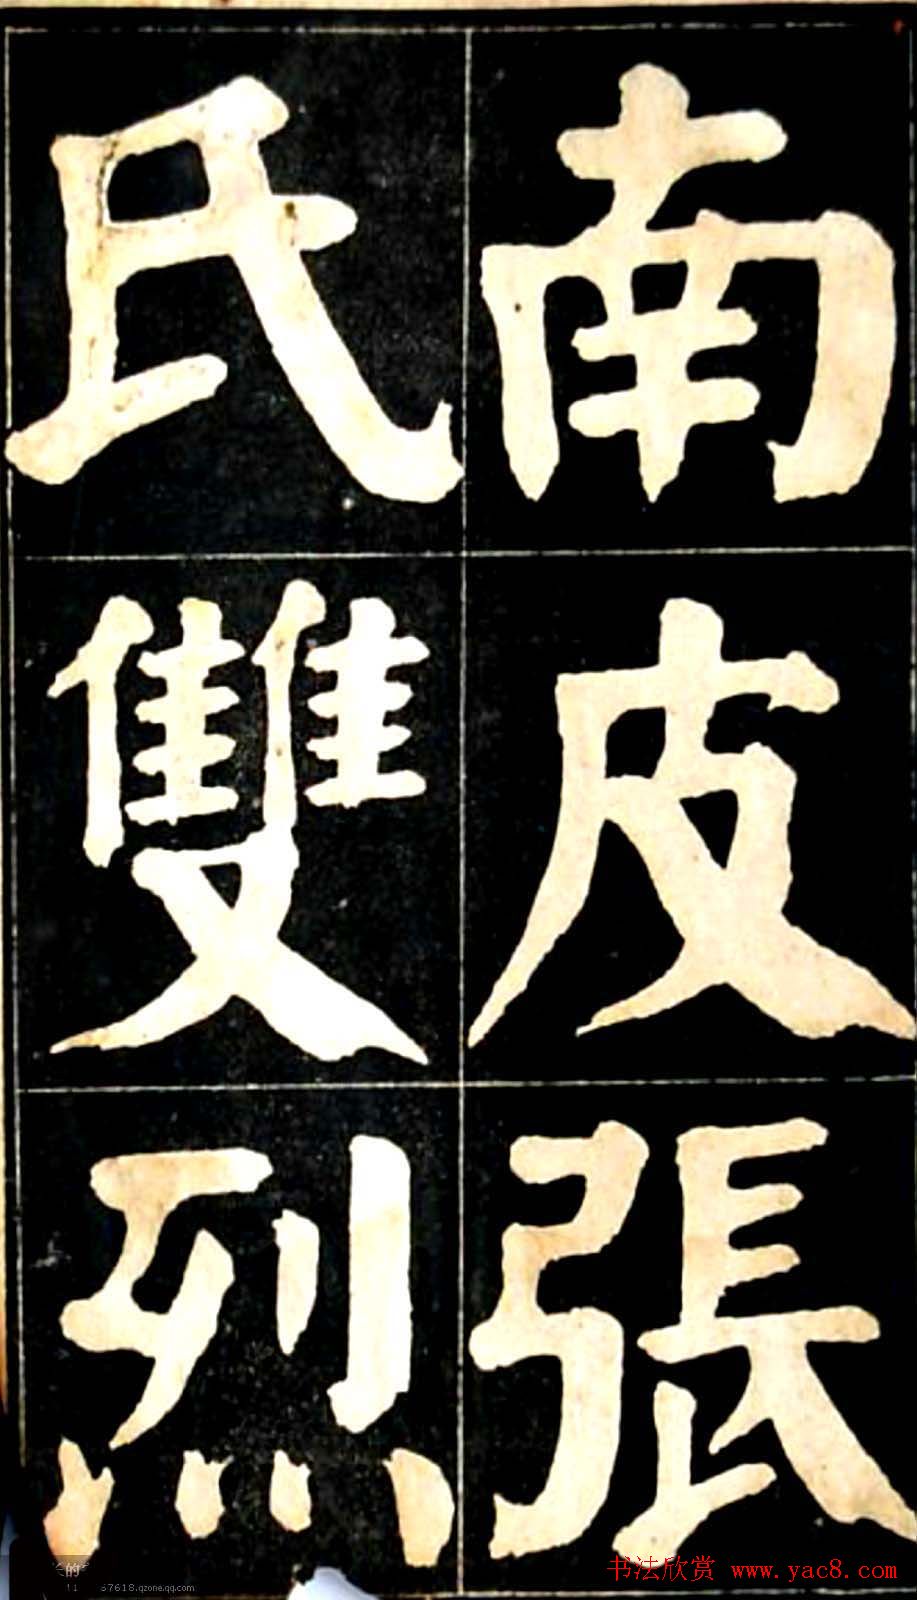 南皮張
氏雙烈
书法欣赏 www.yac8.com
67618.qzone.qq.com